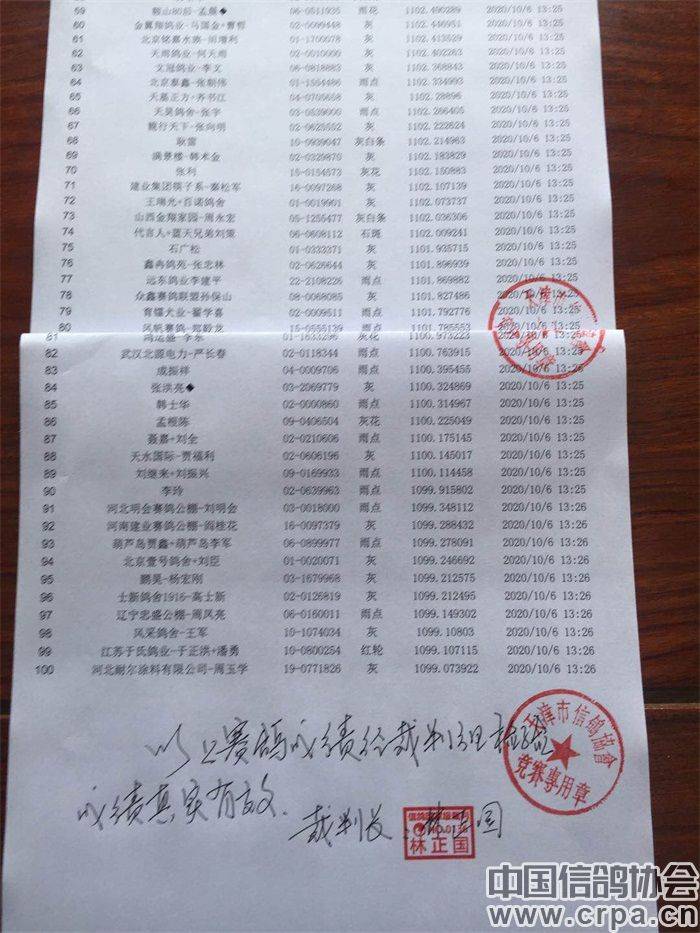 59 鞍山80后-孟磊◆ 06-0511935 雨花 1102.490289 2020/10/6 13:25
60 金翼翔鸽业-马国金+曹哲 02-0009448 灰 1102.446951 2020/10/6 13:25
61 北京铭嘉水族-田增利 01-1700078 灰 1102.413529 2020/10/6 13:25
62 天雨鸽业-何天雨 02-0010000 灰 1102.402263 2020/10/6 13:25
63 文冠鸽业-李文 06-0818883 灰 1102.368843 2020/10/6 13:25
64 北京泰鑫-张朝伟 01-1554486 雨点 1102.334993 2020/10/6 13:25
65 天嘉正方-齐书江 04-0705558 灰 1102.28896 2020/10/6 13:25
66 天昊鸽舍-张宇 03-0539000 雨点 1102.266405 2020/10/6 13:25
67 毓行天下-张向明 02-0625552 灰 1102.222624 2020/10/6 13:25
68 耿雷 10-0939047 灰白条 1102.214963 2020/10/6 13:25
69 满景楼-韩术金 02-0329870 灰 1102.183829 2020/10/6 13:25
70 张利 15-0154573 灰花 1102.150883 2020/10/6 13:25
71 建业集团筷子系-秦松军 16-0097268 灰 1102.107139 2020/10/6 13:25
72 王瑞光+百诺鸽舍 01-0019901 灰 1102.073737 2020/10/6 13:25
73 山西金翔家园-周永宏 05-1255477 灰白条 1102.036306 2020/10/6 13:25
74 代言人+蓝天兄弟刘策 06-0608112 石斑 1102.009241 2020/10/6 13:25
75 石广松 01-0333371 灰 1101.935715 2020/10/6 13:25
76 鑫冉鸽苑-张忠林 02-0626644 灰 1101.896939 2020/10/6 13:25
77 远东鸽业李建平 22-2108226 雨点 1101.869882 2020/10/6 13:25
78 众鑫赛鸽联盟孙保山 08-0068085 灰 1101.827486 2020/10/6 13:25
79 育镭大业-翟学喜 02-0009511 雨点 1101.792776 2020/10/6 13:25
80 风帆赛鸽-郑毅龙 15-0555139 雨点 1101.785553 2020/10/6 13:25
81 鸿运盛-李东 01-1633296 灰花 1100.973223 2020/10/6 13:25
82 武汉北源电力-严长春 02-0118344 雨点 1100.763915 2020/10/6 13:25
83 成振祥 04-0009706 雨点 1100.395455 2020/10/6 13:25
84 张洪亮◆ 03-2069779 灰 1100.324869 2020/10/6 13:25
85 韩士华 02-0000860 雨点 1100.314967 2020/10/6 13:25
86 孟根陈 09-0406504 灰花 1100.225049 2020/10/6 13:25
87 聂嘉+刘全 02-0210606 雨点 1100.175145 2020/10/6 13:25
88 天水国际-贾福利 02-0606196 灰 1100.145017 2020/10/6 13:25
89 刘继来+刘振兴 09-0169933 雨点 1100.114458 2020/10/6 13:25
90 李玲 02-0639963 雨点 1099.915802 2020/10/6 13:25
91 河北明会赛鸽公棚-刘明会 03-0018000 雨点 1099.348112 2020/10/6 13:26
92 河南建业赛鸽公棚-阎桂花 16-0097379 灰 1099.288432 2020/10/6 13:26
93 葫芦岛贾鑫+葫芦岛李军 06-0899977 雨点 1099.278091 2020/10/6 13:26
94 北京壹号鸽舍+刘臣 01-0020071 灰 1099.246692 2020/10/6 13:26
95 鹏昊-杨宏刚 03-1679968 灰 1099.212575 2020/10/6 13:26
96 士新鸽舍1916-高士新 02-0126819 灰 1099.212495 2020/10/6 13:26
97 辽宁忠盛公棚-周凤亮 06-0160011 雨点 1099.149302 2020/10/6 13:26
98 风采鸽舍-王军 10-1074034 灰 1099.10803 2020/10/6 13:26
99 江苏于氏鸽业-于正洪+潘勇 10-0800254 红轮 1099.107115 2020/10/6 13:26
100 河北耐尔涂料有限公司-周玉学 19-0771826 灰 1099.073922 2020/10/6 13:26
以上赛鸽成绩经裁判组检验
成绩真实有效.
裁判长:林正国
林正国
天津市信鸽協會
竞赛專用章
中国信鸽协会
www.crpa.cn